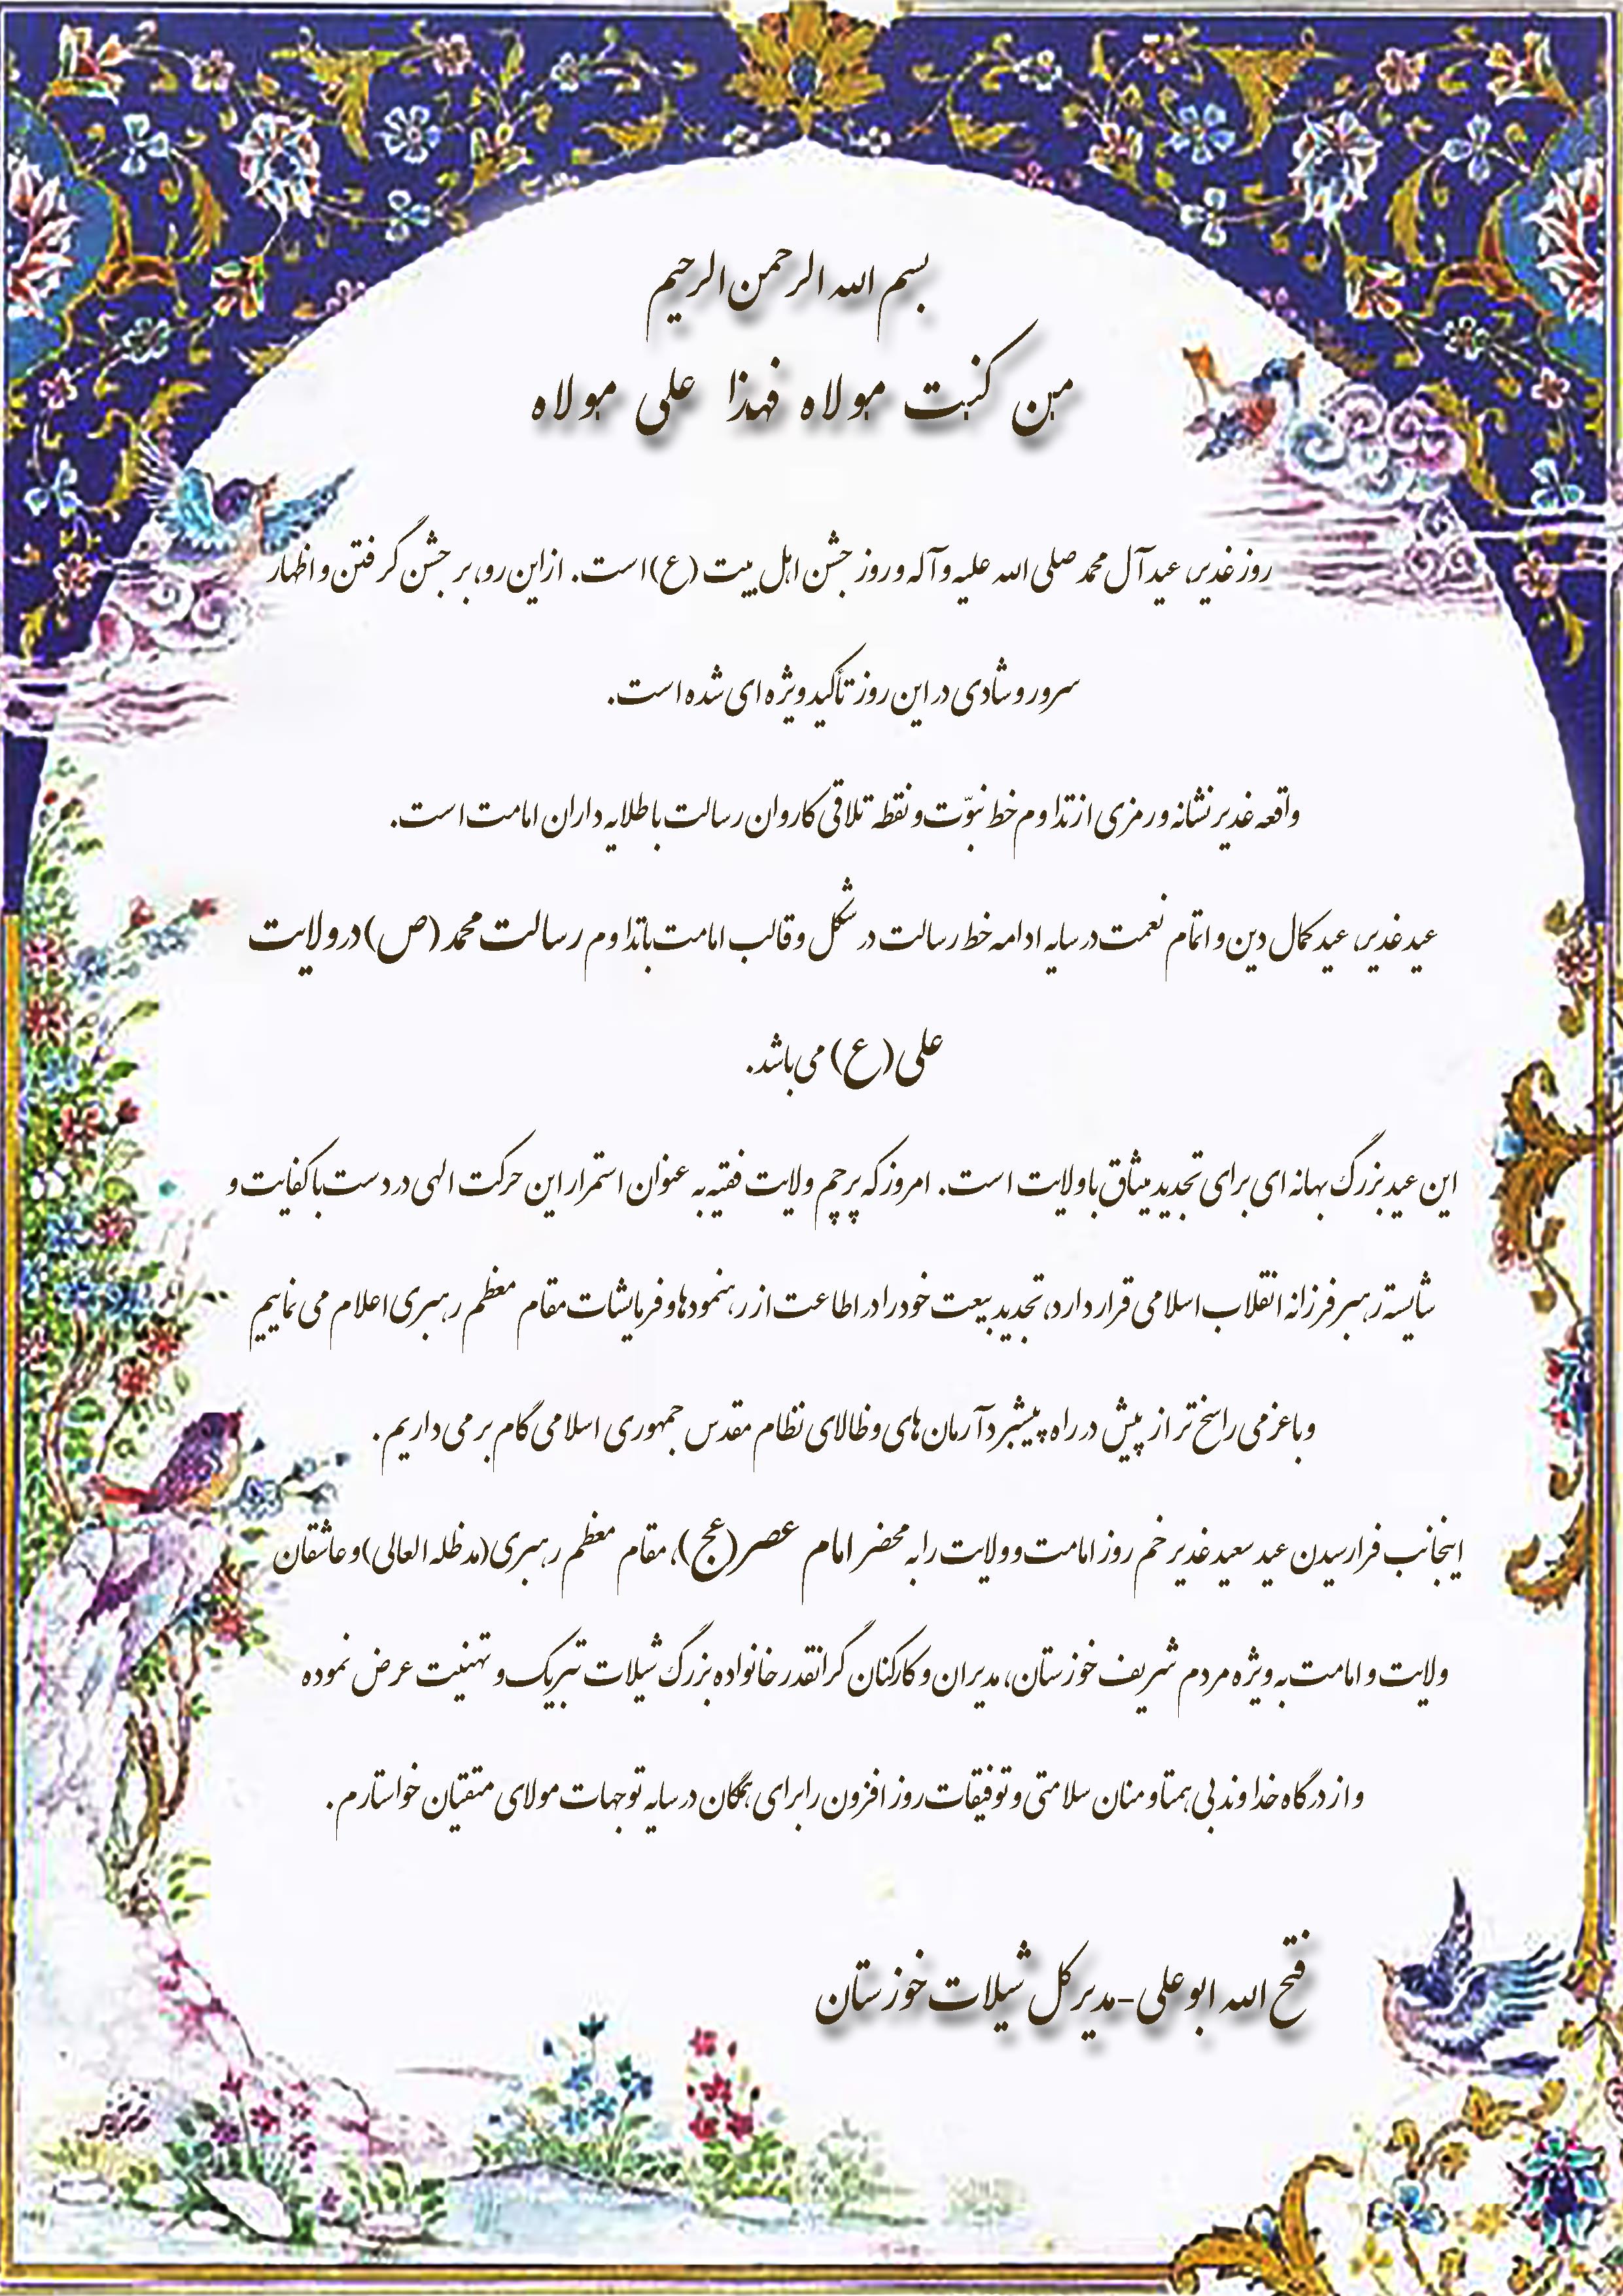 بسم الله الرحمن الرحیم
من کنت مولاه فهذا علی مولاه
روز غدیر، عید آل محمد صلی الله علیه و آله و روز جشن اهل بیت (ع) است. از این رو، بر جشن گرفتن و اظهار
سرور و شادی در این روز تأکید ویژه ای شده است.
واقعه غدیر نشانه و رمزی از تداوم خط نبوّت و نقطه تلاقی کاروان رسالت با طلایه داران امامت است.
عید غدیر، عید کمال دین و اتمام نعمت در سایه ادامه خط رسالت در شکل و قالب امامت با تداوم رسالت محمد (ص) در ولایت
علی (ع) می باشد.
این عید بزرگ بهانه ای برای تجدید میثاق با ولایت است. امروز که پرچم ولایت فقیه به عنوان استمرار این حرکت الهی در دست با کفایت و
شایسته رهبر فرزانه انقلاب اسلامی قرار دارد، تجدید بیعت خود را در اطاعت از رهنمودها و فرمایشات مقام معظم رهبری اعلام می نماییم
و با عزمی راسخ تر از پیش در راه پیشبرد آرمان های وظالای نظام مقدس جمهوری اسلامی گام بر می داریم.
اینجانب فرارسیدن عید سعید غدیر خم روز امامت و ولایت را به محضر امام عصر (عج)، مقام معظم رهبری (مدظله العالی) و عاشقان
ولایت و امامت به ویژه مردم شریف خوزستان، مدیران و کارکنان گرانقدر خانواده بزرگ شیلات تبریک و تهنیت عرض نموده
و از درگاه خداوند بی همتا و منان سلامتی و توفیقات روز افزون را برای همگان در سایه توجهات مولای متقیان خواستارم.
فتح الله ابوعلی-مدیر کل شیلات خوزستان